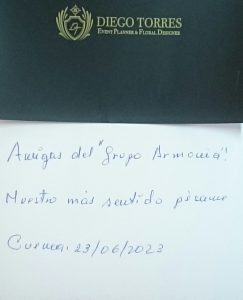 DIEGO TORRES
EVENT PLANNER & FLORAL DESIGNER
Amigas del "Grupo Armonía"!
Nuestro más sentido pésame
Cuenca, 23/06/2023